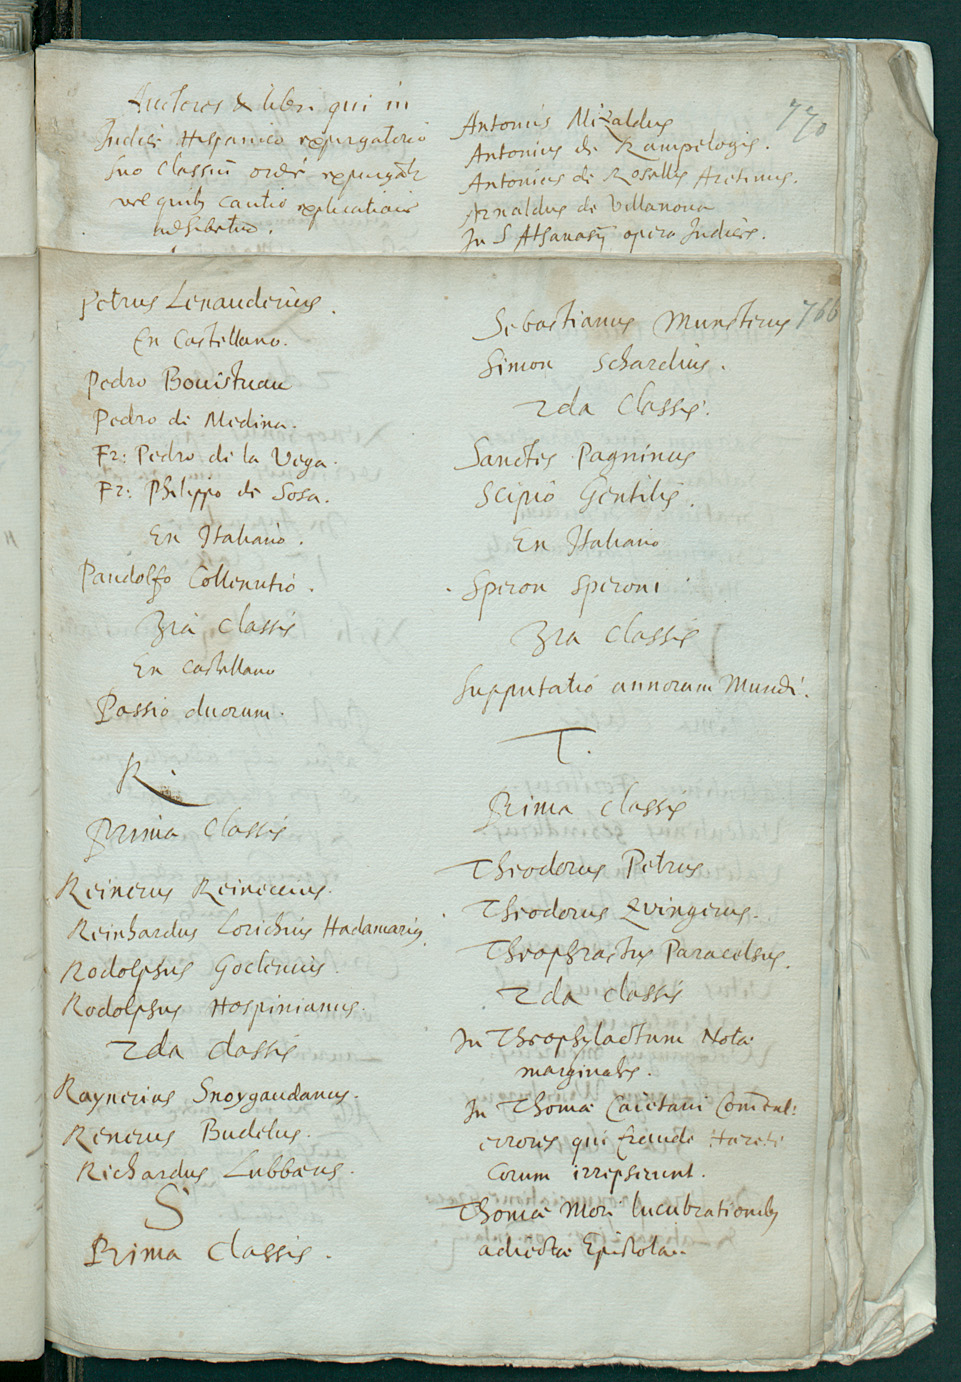 Auctores & libri qui in
Indice Hispanico expurgatorio
suo Classiũ ordĩe expungũt
vel quib cautio explicatioũe
adhibetur.
Antonius Mizaldus
770
Antonius de Rampelogis.
Antonius de Rosellis Aretinus.
Arnaldus de Villanova
In S Athanasij opera Indices.
Petrus Lenauderius.
En Castellano.
Pedro Bouistuau
Pedro de Medina.
Fr: Pedro de la Vega.
Fr: Philippo de Sosa.
En Italiano.
Pandolfo Collenutio.
3ra Classis
En Castellano
Passio duorum.
R.
Prima Classis
Reinerus Reineccius.
Reinhardus Lorichius Hadamarius.
Rodolphus Goclenius.
Rodolphus Hospinianus.
2da classis
Raynerius Snoygaudanus.
Renerus Budelus.
Richardus Lubbæus.
S
Prima Classis.
Sebastianus Munsterus
766
Simon Schardius.
2da Classis.
Sanctes Pagninus
Scipio Gentilis.
En Italiano
Speron Speroni
3ra Classis
Supputatio annorum Mundi.
T.
Prima Classis
Theodorus Petrus
Theodorus Zvingerus.
Theophrastus Paracelsus.
2da classis
In Theophylactum Notæ
marginales.
In Thomæ Caietani Coment:
errores qui fraude Hæreti
corum irrepserunt.
Thomæ Mori lucubrationib
adiectæ Epistolæ.